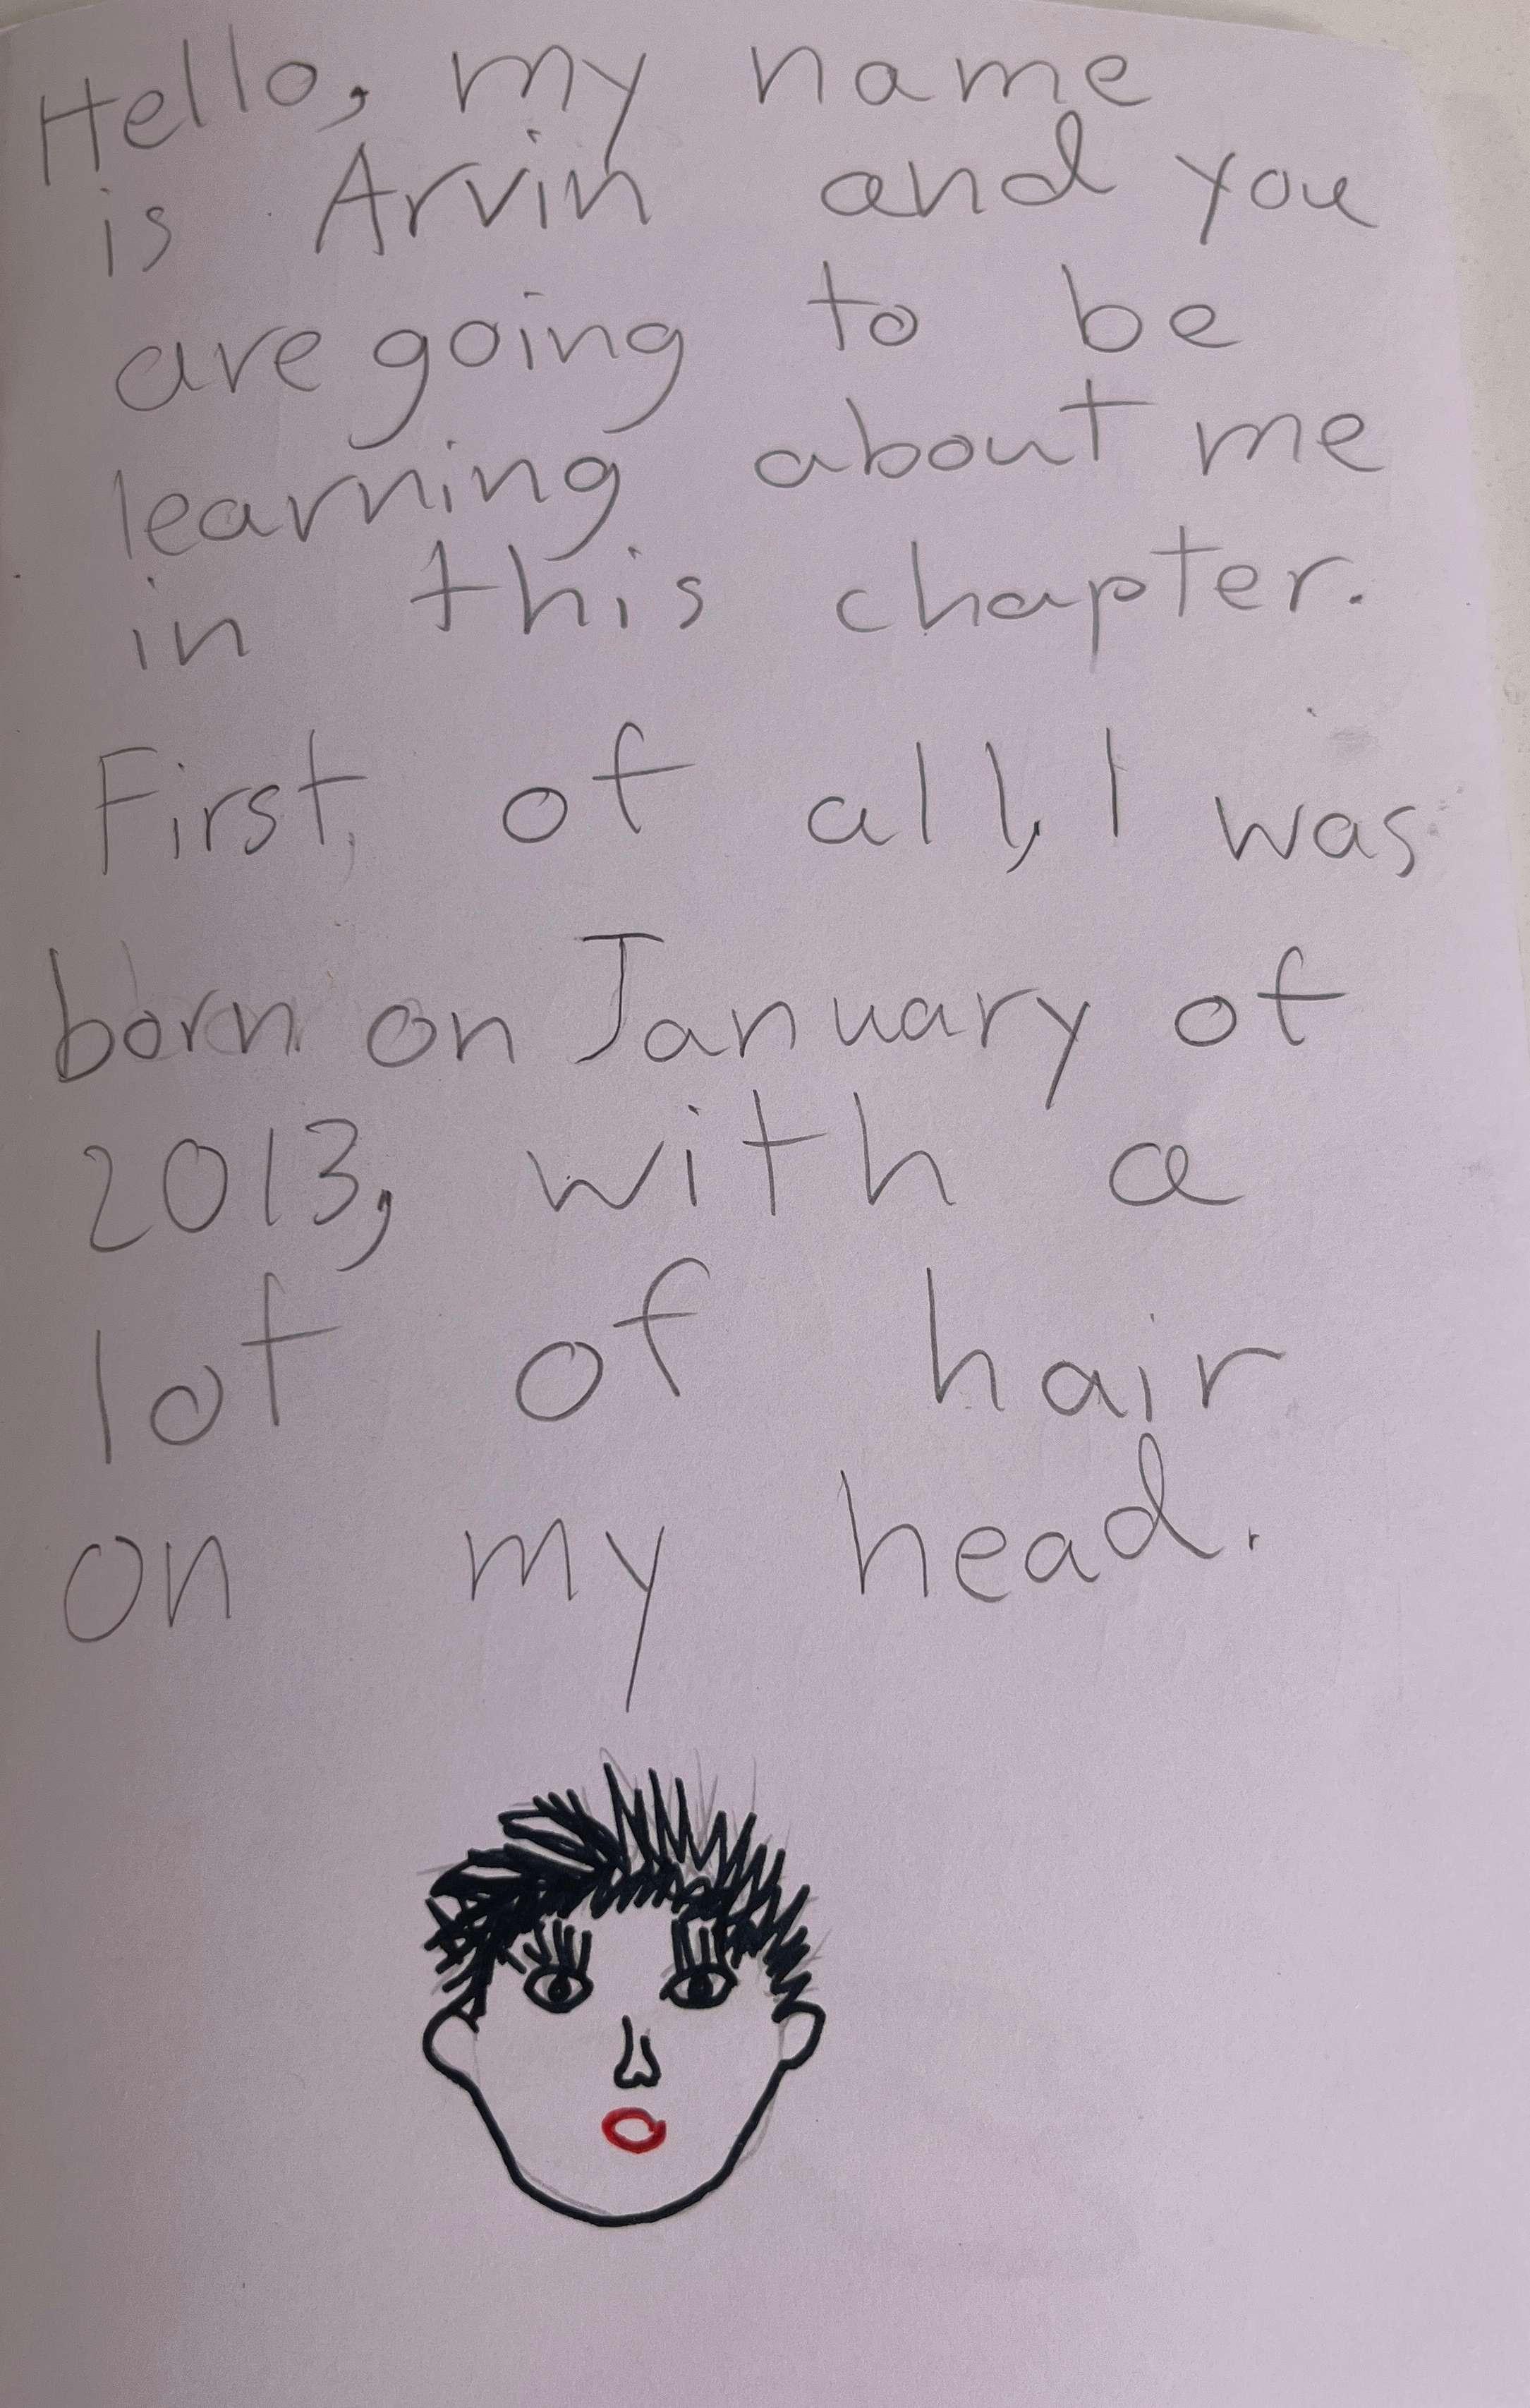 Hello, my name
is Arvin and you
are going to be
learning about me
in this chapter.
First, of all, I was
born on January of
2013, with a
lot of hair
on my head.